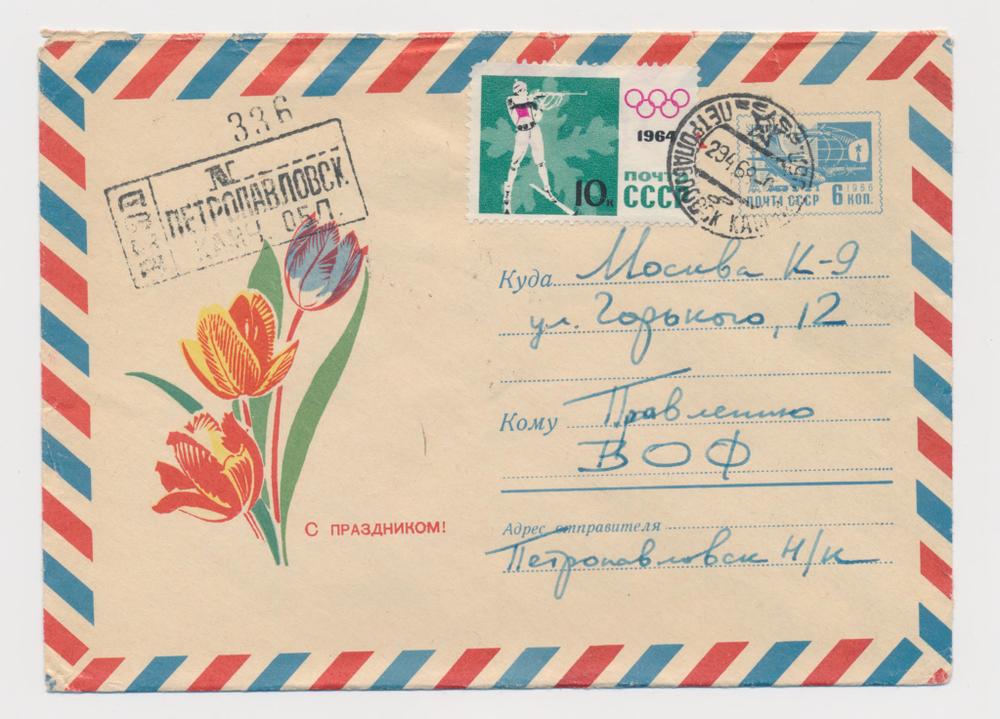 336
№
ПЕТРОПАВЛОВСК
КАМЧ. ОБЛ.
1964
10к
ПОЧТА
СССР
1966
ПОЧТА СССР 6 КОП.
Куда Москва К-9
ул. Горького, 12
Кому Правлению
ВОФ
С ПРАЗДНИКОМ!
Адрес отправителя
Петропавловск Н/К